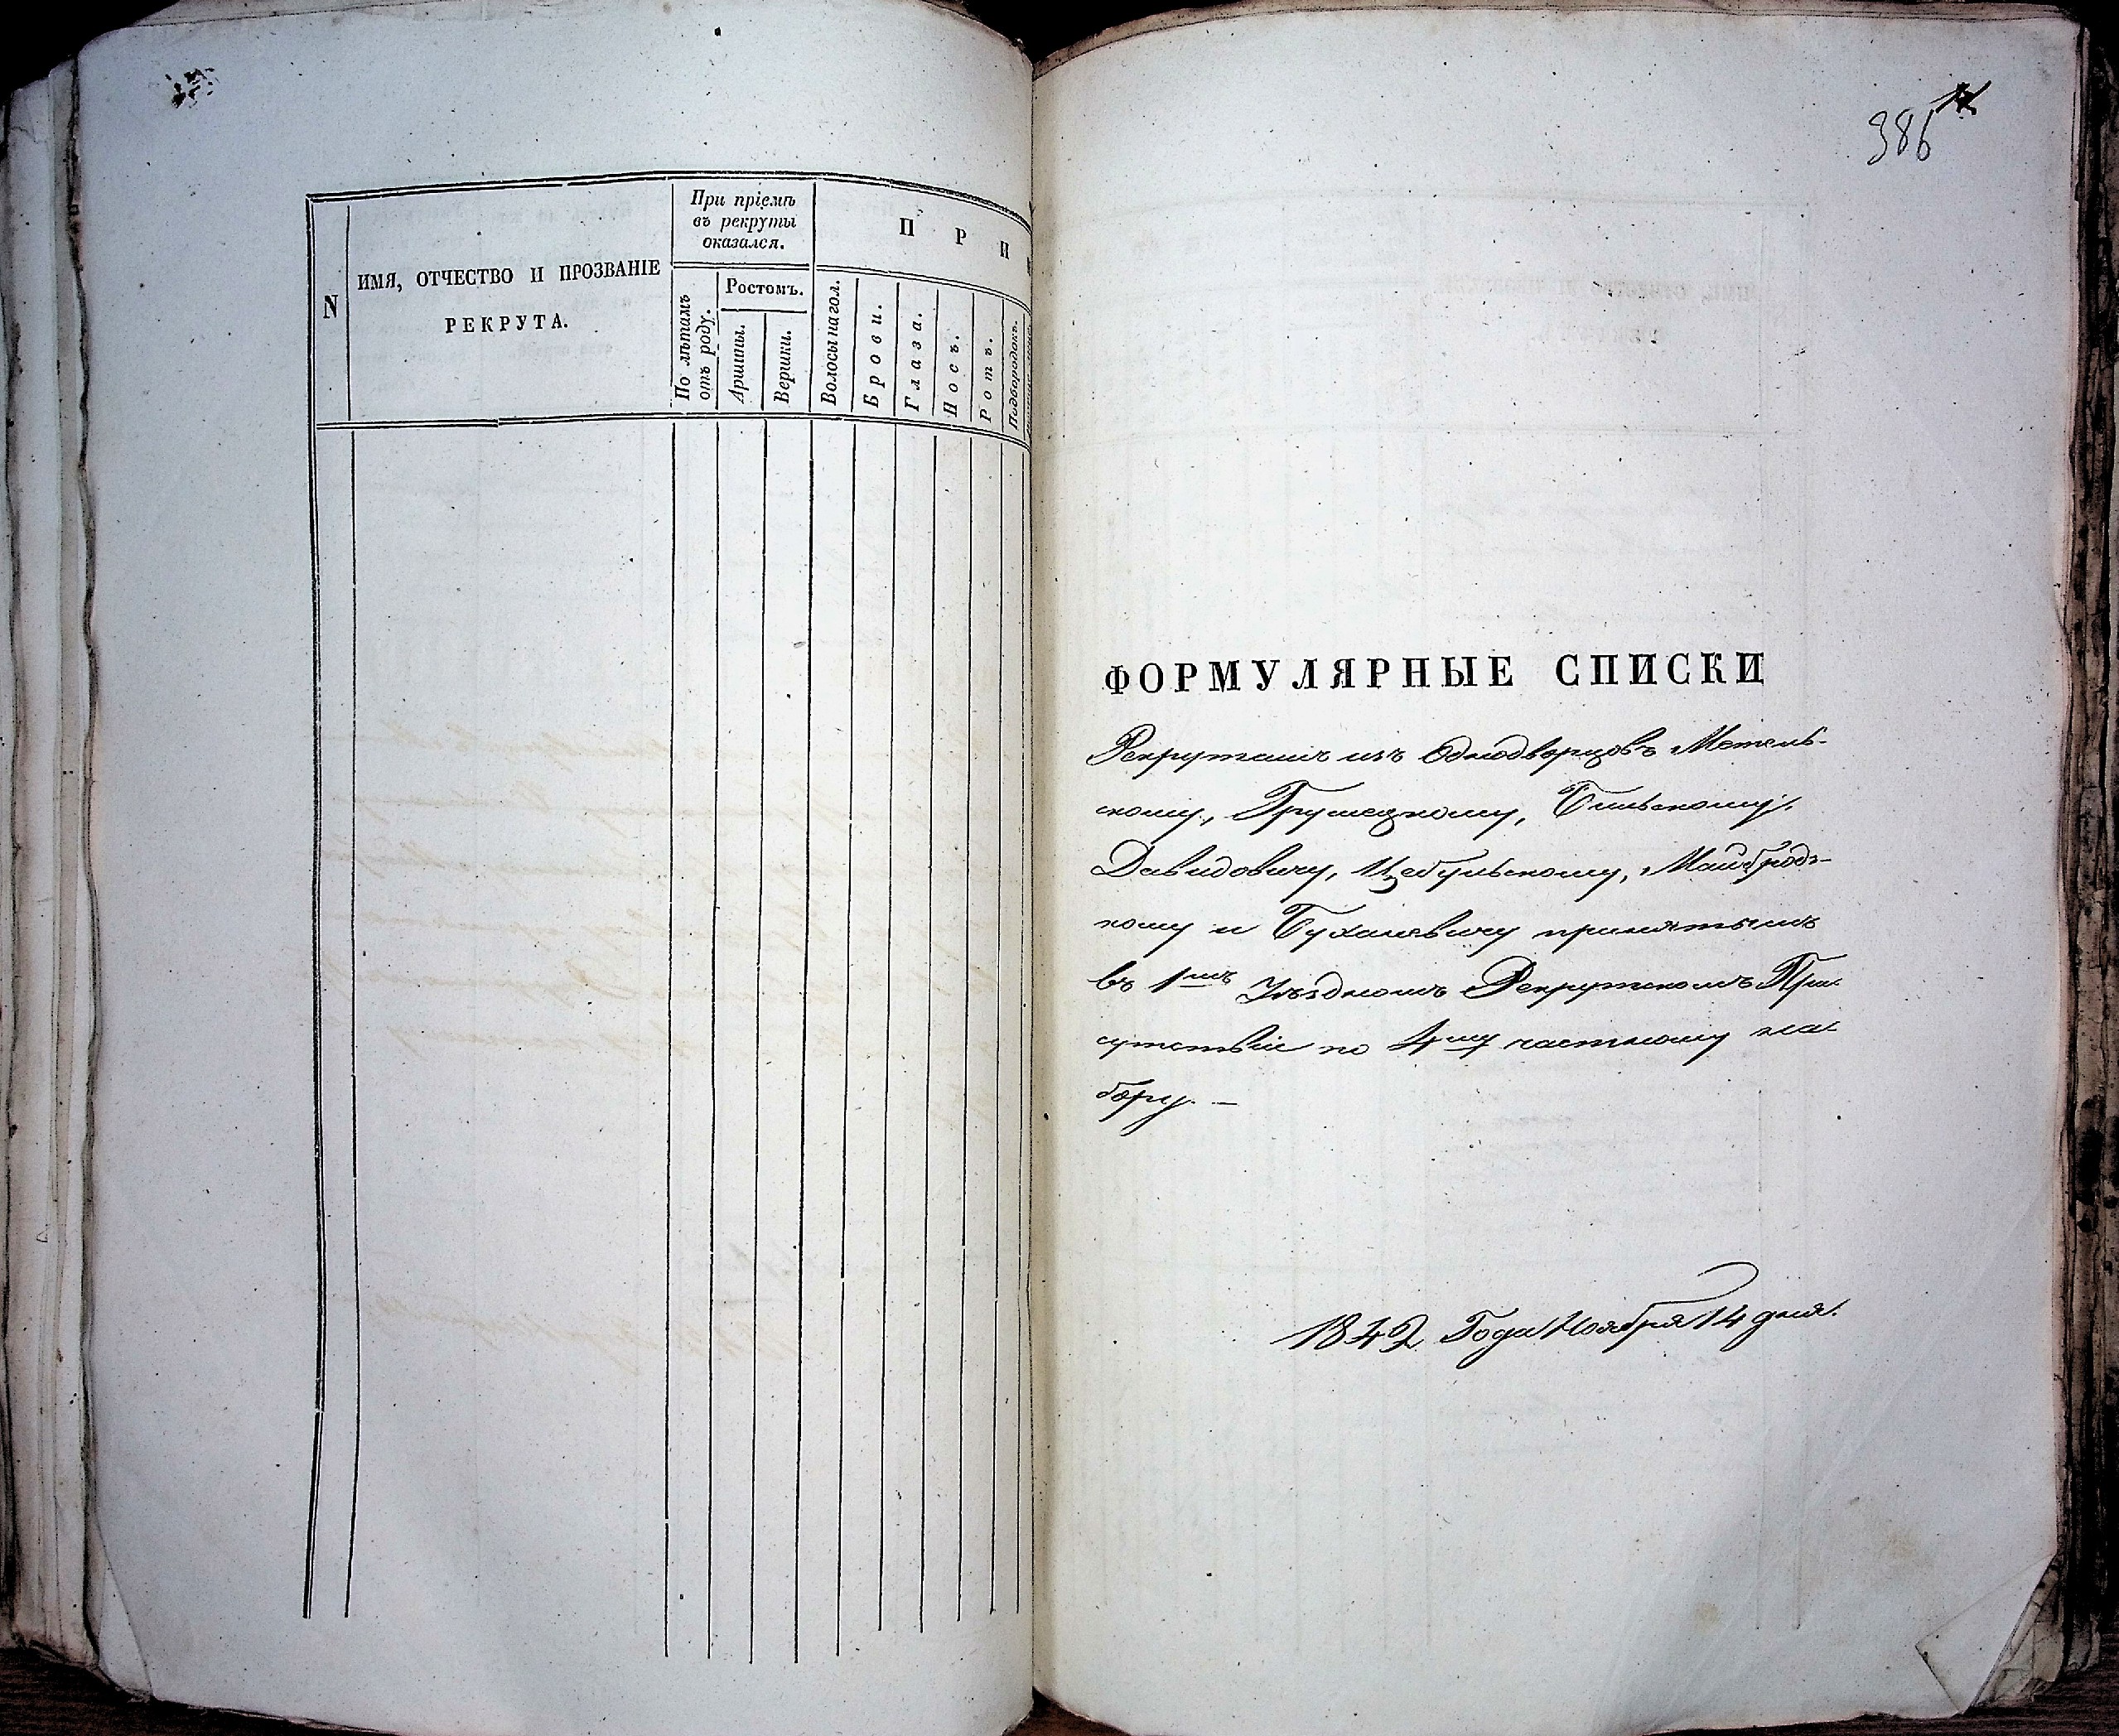 N
ИМЯ, ОТЧЕСТВО И ПРОЗВАНІЕ
РЕКРУТА.
При пріемѣ
въ рекруты
оказался.
По лѣтамъ
отъ роду.
Ростомъ.
Аршины.
Вершки.
П Р И
Волосы на гол.
Брови.
Глаза.
Носъ.
Ротъ.
Подбородокъ.
386
ФОРМУЛЯРНЫЕ СПИСКИ
Рекрутамъ изъ Однодворцовъ Метель-
скому, Грушецкому, Бильскому,
Давидовичу, Цебульскому, Майбродз-
кому и Буханевичу принятымъ
въ 1мъ Уѣздномъ Рекрутскомъ При-
сутствіе по 4му частному на
бору. —
1842 Года Ноября 14 дня.